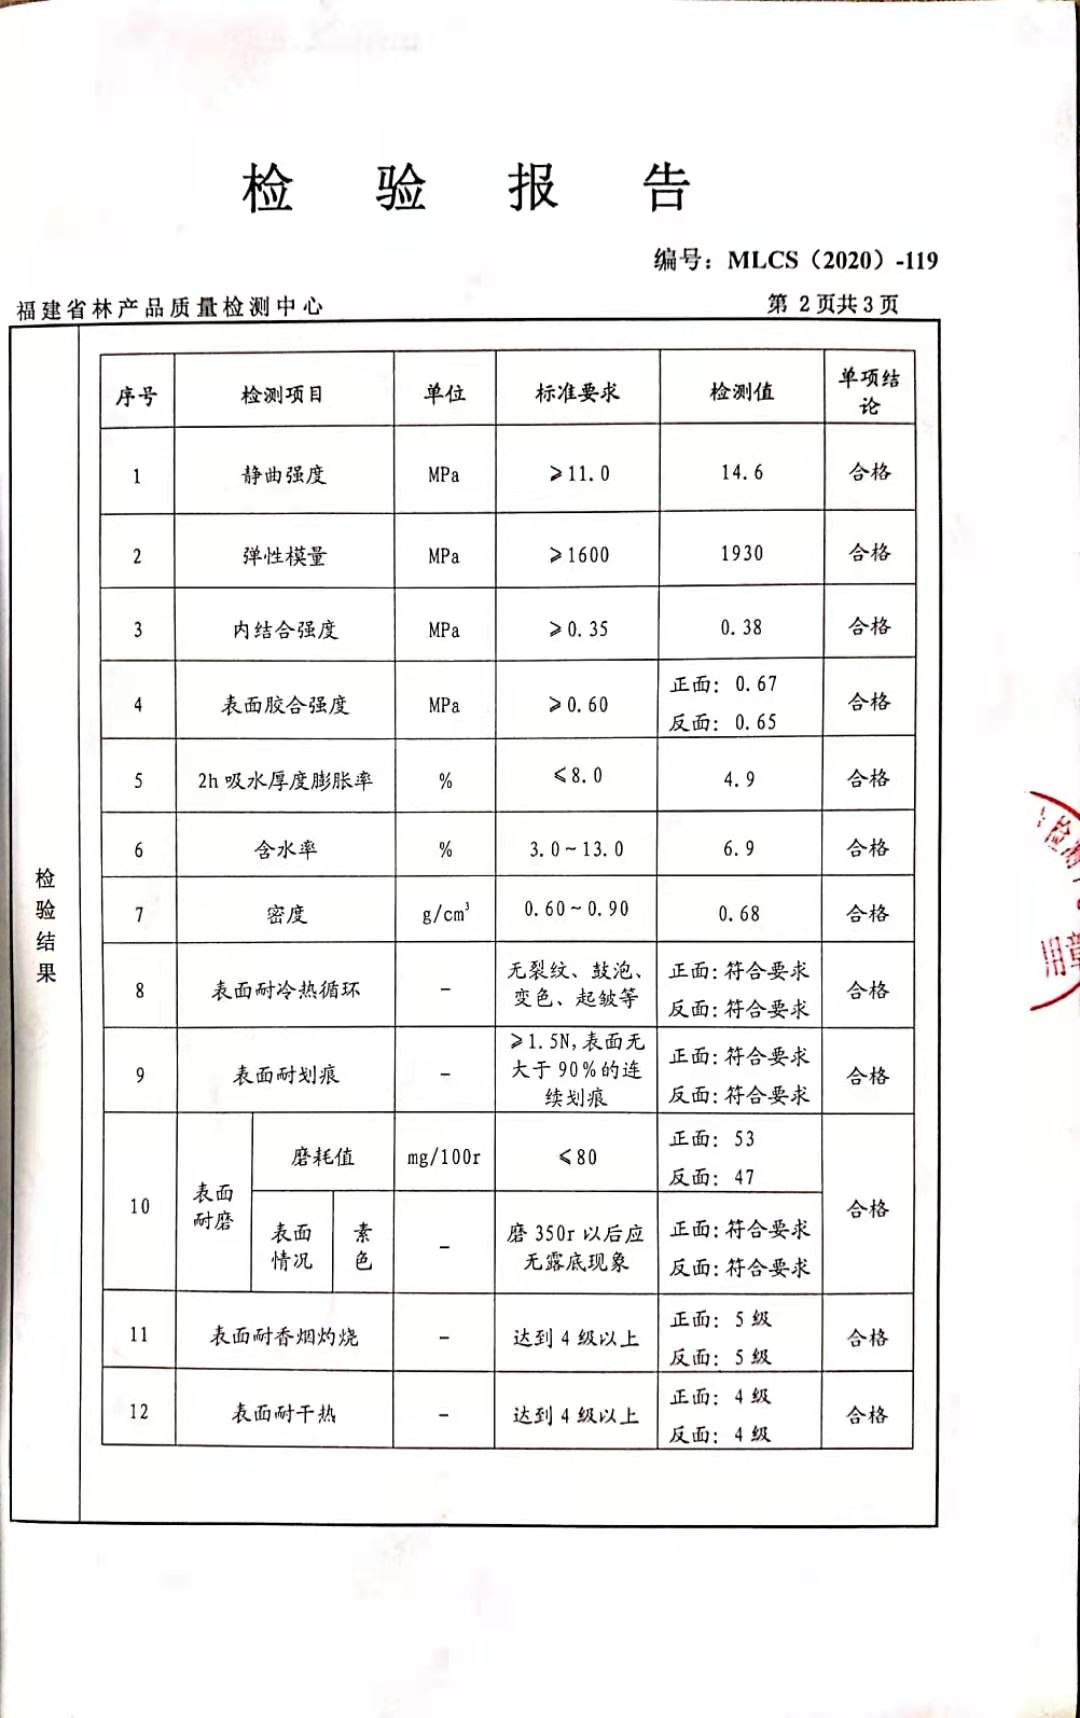 检验报告
编号：MLCS（2020）-119
福建省林产品质量检测中心 第 2 页共 3 页
检验结果
序号 检测项目 单位 标准要求 检测值 单项结论
1 静曲强度 MPa ≥11.0 14.6 合格
2 弹性模量 MPa ≥1600 1930 合格
3 内结合强度 MPa ≥0.35 0.38 合格
4 表面胶合强度 MPa ≥0.60 正面：0.67 反面：0.65 合格
5 2h 吸水厚度膨胀率 % ≤8.0 4.9 合格
6 含水率 % 3.0~13.0 6.9 合格
7 密度 g/cm³ 0.60~0.90 0.68 合格
8 表面耐冷热循环 - 无裂纹、鼓泡、变色、起皱等 正面：符合要求 反面：符合要求 合格
9 表面耐划痕 - ≥1.5N，表面无大于 90%的连续划痕 正面：符合要求 反面：符合要求 合格
10 表面耐磨 磨耗值 mg/100r ≤80 正面：53 反面：47 合格
表面情况 素色 - 磨 350r 以后应无露底现象 正面：符合要求 反面：符合要求
11 表面耐香烟灼烧 - 达到 4 级以上 正面：5 级 反面：5 级 合格
12 表面耐干热 - 达到 4 级以上 正面：4 级 反面：4 级 合格
检测
用章